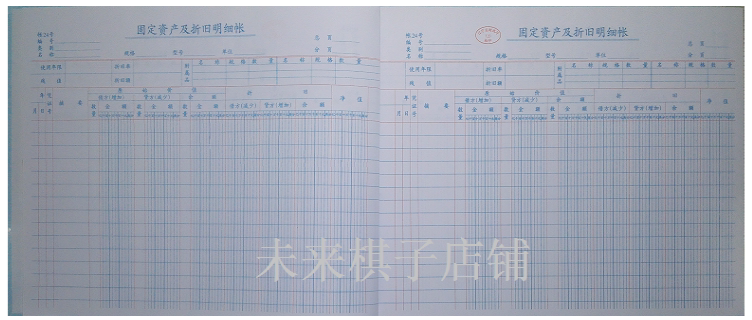 固定资产及折旧明细帐
帐24号
编号
类别
名称
规格
型号
单位
总页
分页
使用年限
折旧率
残值
折旧额
附属品
名称 规格 数量 名称 规格 数量
年 凭证 摘要
月 日 号
原始价值
借方(增加) 贷方(减少) 余额
数量 金额 数量 金额 数量 金额
折旧
借方(减少) 贷方(增加) 余额
净值
固定资产及折旧明细帐
帐24号
编号
类别
名称
规格
型号
单位
总页
分页
使用年限
折旧率
残值
折旧额
附属品
名称 规格 数量 名称 规格 数量
年 凭证 摘要
月 日 号
原始价值
借方(增加) 贷方(减少) 余额
数量 金额 数量 金额 数量 金额
折旧
借方(减少) 贷方(增加) 余额
净值
未来棋子店铺